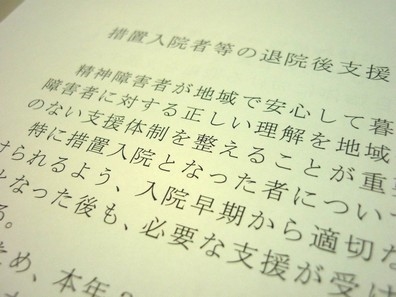 措置入院者等の退院後支援
精神障害者が地域で安心して暮
障害者に対する正しい理解を地域
のない支援体制を整えることが重要
特に措置入院となった者につい
けられるよう、入院早期から適切な
となった後も、必要な支援が受け
る。
ため、本年